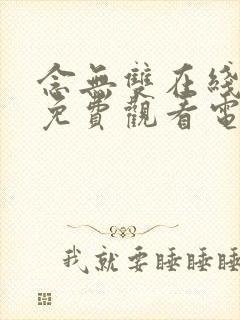 念無雙在綫
免費觀看電
我就要睡睡睡